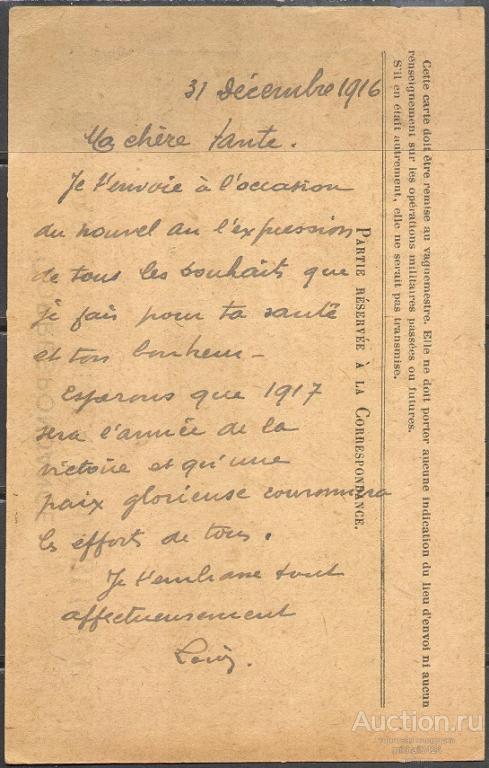 31 Décembre 1916
Ma chère tante.
Je t'envoie à l'occasion
du nouvel an l'expression
de tous les souhaits que
je fais pour ta santé
et ton bonheur -
Esperons que 1917
sera l'année de la
victoire et qu'une
paix glorieuse couronnera
les efforts de tous.
Je t'embrasse tout
affectueusement
Louis.
PARTIE RÉSERVÉE À LA CORRESPONDANCE.
Cette carte doit être remise au vaguemestre. Elle ne doit porter aucune indication du lieu d'envoi ni aucun
renseignement sur les opérations militaires passées ou futures.
S'il en était autrement, elle ne serait pas transmise.
Auction.ru